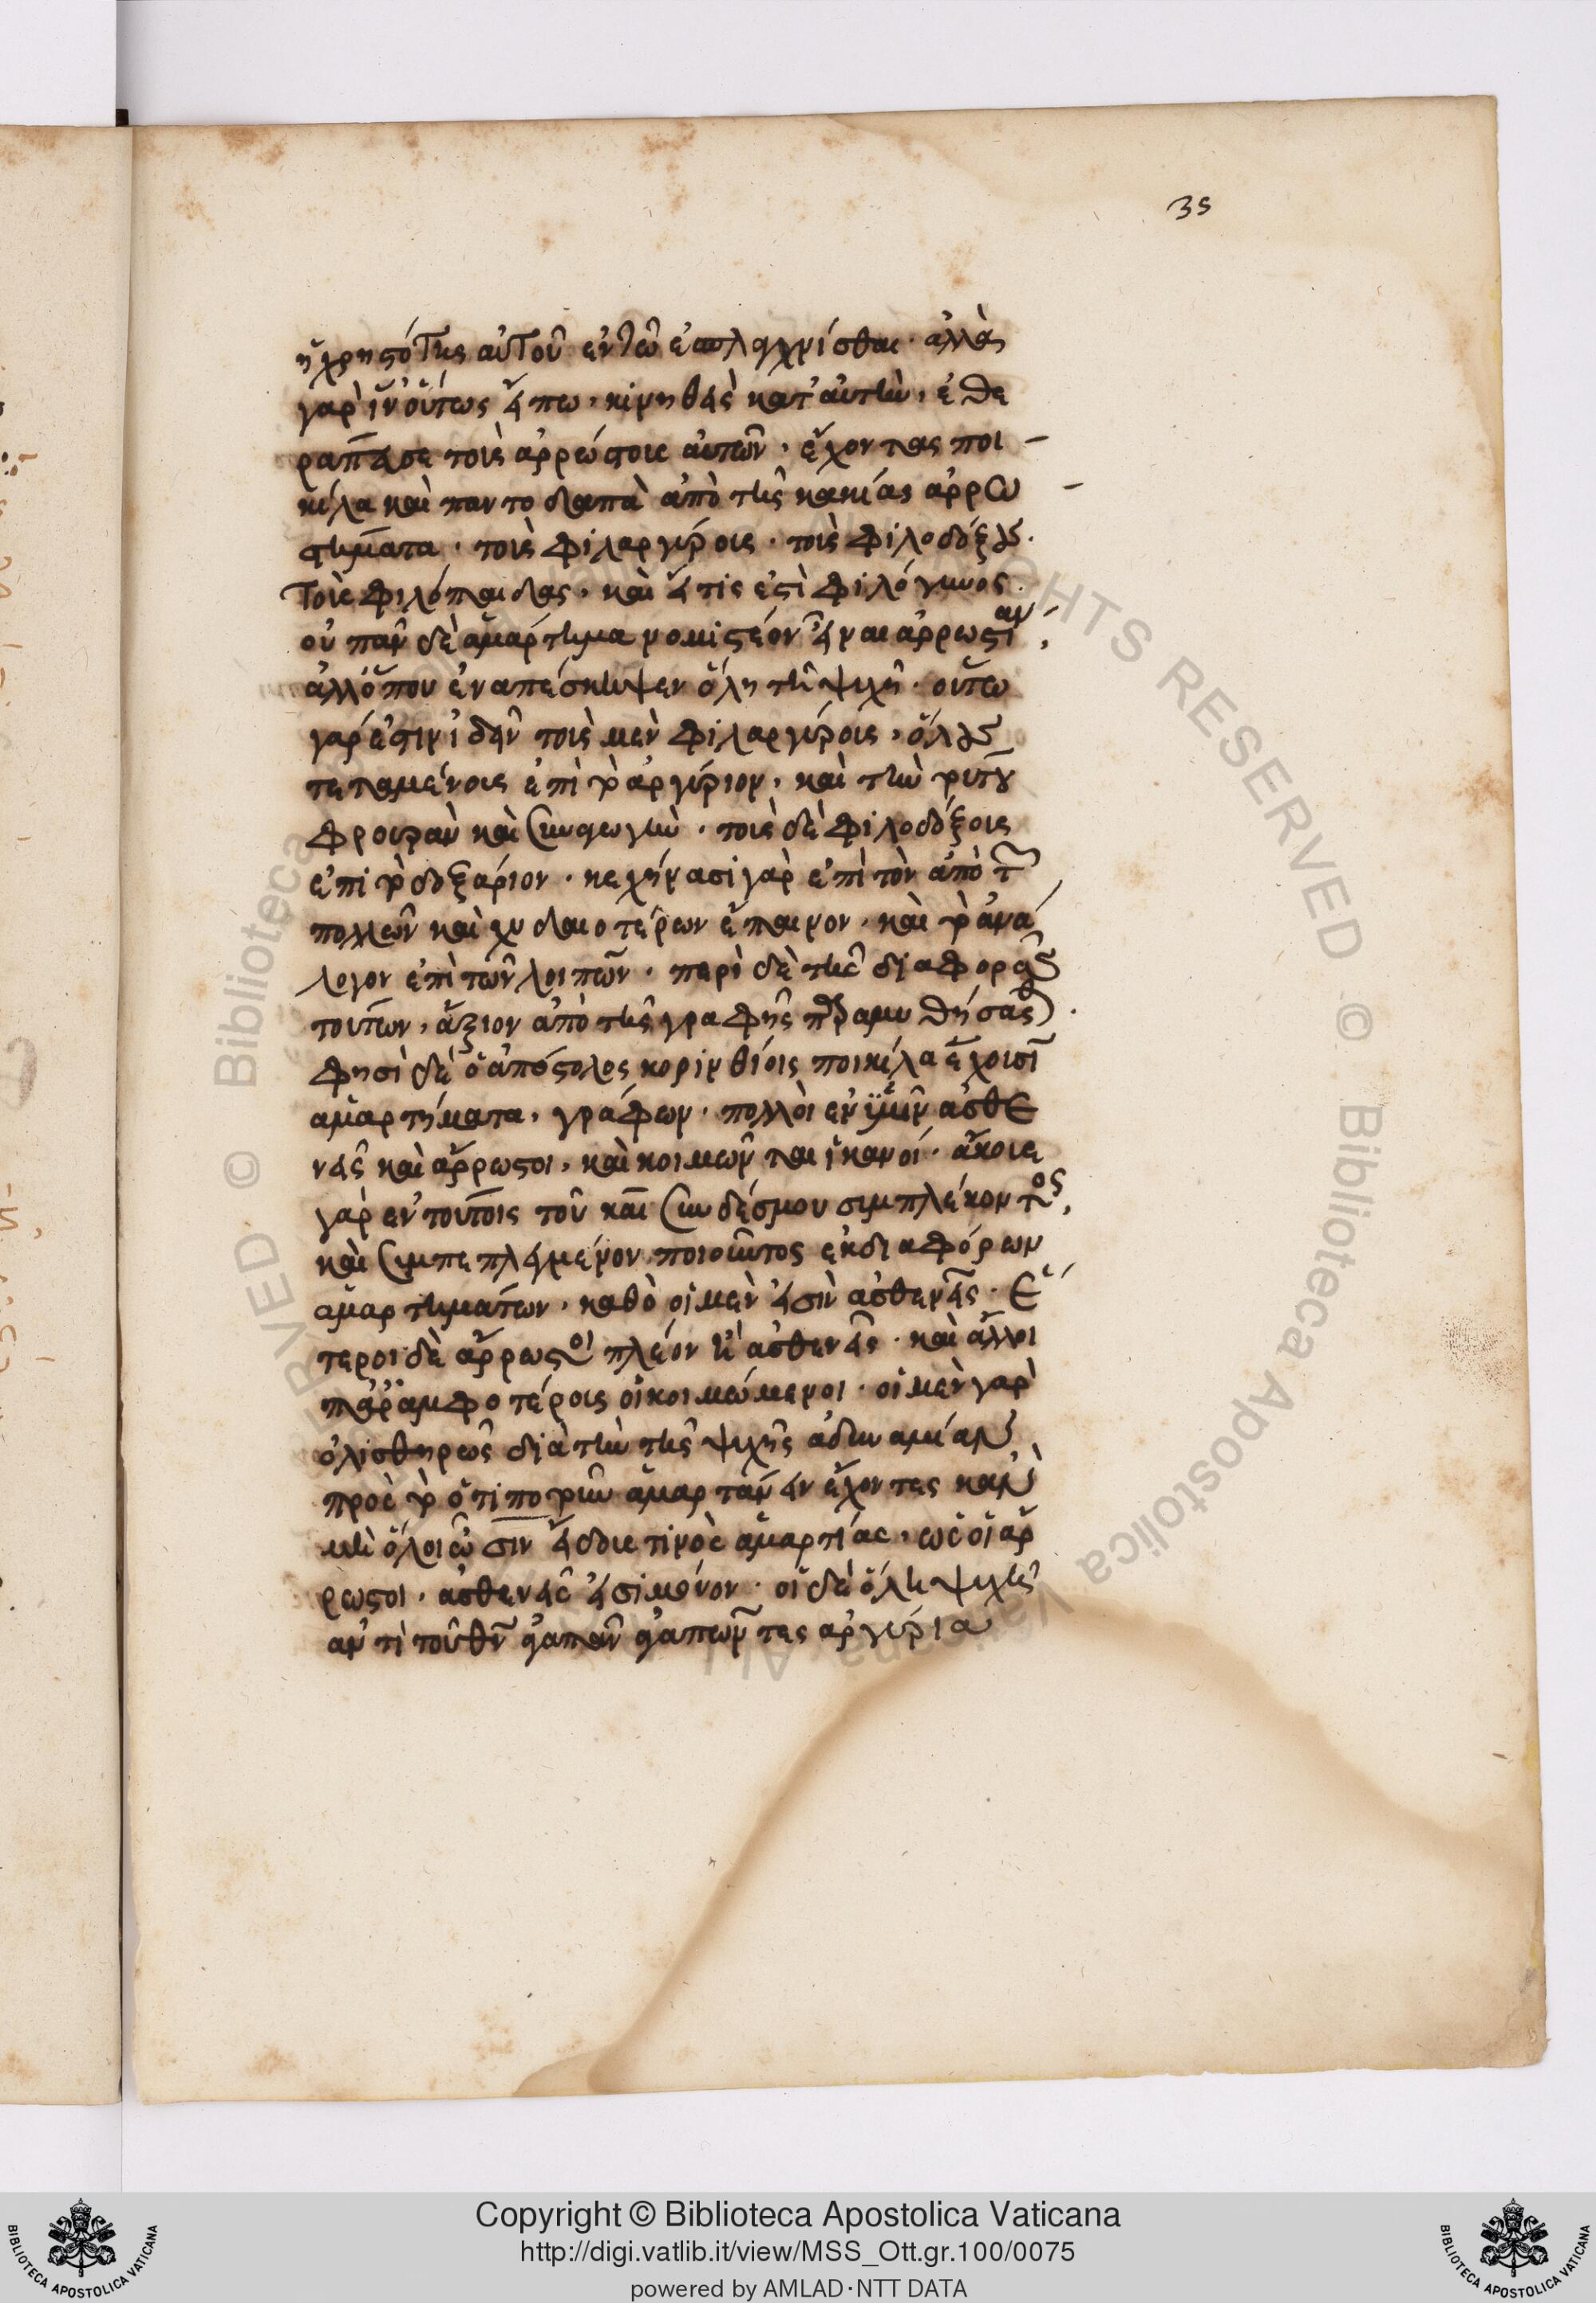 35
ἡ χρηστότης αὐτοῦ ἐν τῶ ἐσπλαγχνίσθαι· ἀλλὰ
γὰρ ἵν' οὕτως εἴπω, κινηθεὶς κατ' αὐτὴν, ἐθε
ράπευσε τοὺς ἀρρώστους αὐτῶν, ἔχοντας ποι
κίλα καὶ παντοδαπὰ ἀπὸ τῆς κακίας ἀρρω
στήματα· τοὺς φιλαργύρους· τοὺς φιλοδόξους·
τοὺς φιλόπαιδας, καὶ εἴ τις ἐστὶ φιλόγυνος·
οὐ πᾶν δὲ ἁμάρτημα νομιστέον εἶναι ἀρρωστίαν,
ἀλλ' ὅπου ἐναπέσκηψεν ὅλη τῆ ψυχῆ· οὕτω
γάρ ἐστιν ἰδεῖν τοὺς μὲν φιλαργύρους, ὅλους
τεταμένους ἐπὶ τὸ ἀργύριον, καὶ τὴν τούτου
φρουρὰν καὶ συναγωγὴν· τοὺς δὲ φιλοδόξους
ἐπὶ τὸ δοξάριον· κεχήνασι γὰρ ἐπὶ τὸν ἀπὸ τῶν
πολλῶν καὶ χυδαιοτέρων ἔπαινον, καὶ τὸ ἀνά
λογον ἐπὶ τῶν λοιπῶν· περὶ δὲ τῆς διαφορᾶς
τούτων, ἄξιον ἀπὸ τῆς γραφῆς παραμυθήσασθαι·
φησὶ δὲ ὁ ἀπόστολος κορινθίοις ποικίλα ἔχουσιν
ἁμαρτήματα, γράφων· πολλοὶ ἐν ὑμῖν ἀσθε
νεῖς καὶ ἄρρωστοι, καὶ κοιμῶνται ἱκανοί· ἄκουε
γὰρ ἐν τούτοις τοῦ καὶ συνδέσμου συμπλέκοντος,
καὶ συμπεπλεγμένον ποιοῦντος ἐκ διαφόρων
ἁμαρτημάτων, καθὸ οἱ μὲν εἰσὶν ἀσθενεῖς· ἕ
τεροι δὲ ἄρρωστοι πλεῖον ἢ ἀσθενεῖς· καὶ ἄλλοι
παρ' ἀμφοτέρους οἱ κοιμώμενοι· οἱ μὲν γὰρ
ὀλισθηρῶς διὰ τὴν τῆς ψυχῆς ἀδυναμίαν
πρὸς τὸ ὅτι ποτοῦν ἁμαρτάνειν ἔχοντες κἂν
μὴ ὅλοι ὦσιν εἴδους τινὸς ἁμαρτίας, ὡς οἱ ἄρ
ρωστοι, ἀσθενεῖς εἰσι μόνον· οἱ δὲ ὅλη ψυχῆ
ἀντὶ τοῦ θεὸν ἀγαπᾶν ἀγαπῶντες ἀργύρια
Copyright © Biblioteca Apostolica Vaticana
http://digi.vatlib.it/view/MSS_Ott.gr.100/0075
powered by AMLAD·NTT DATA